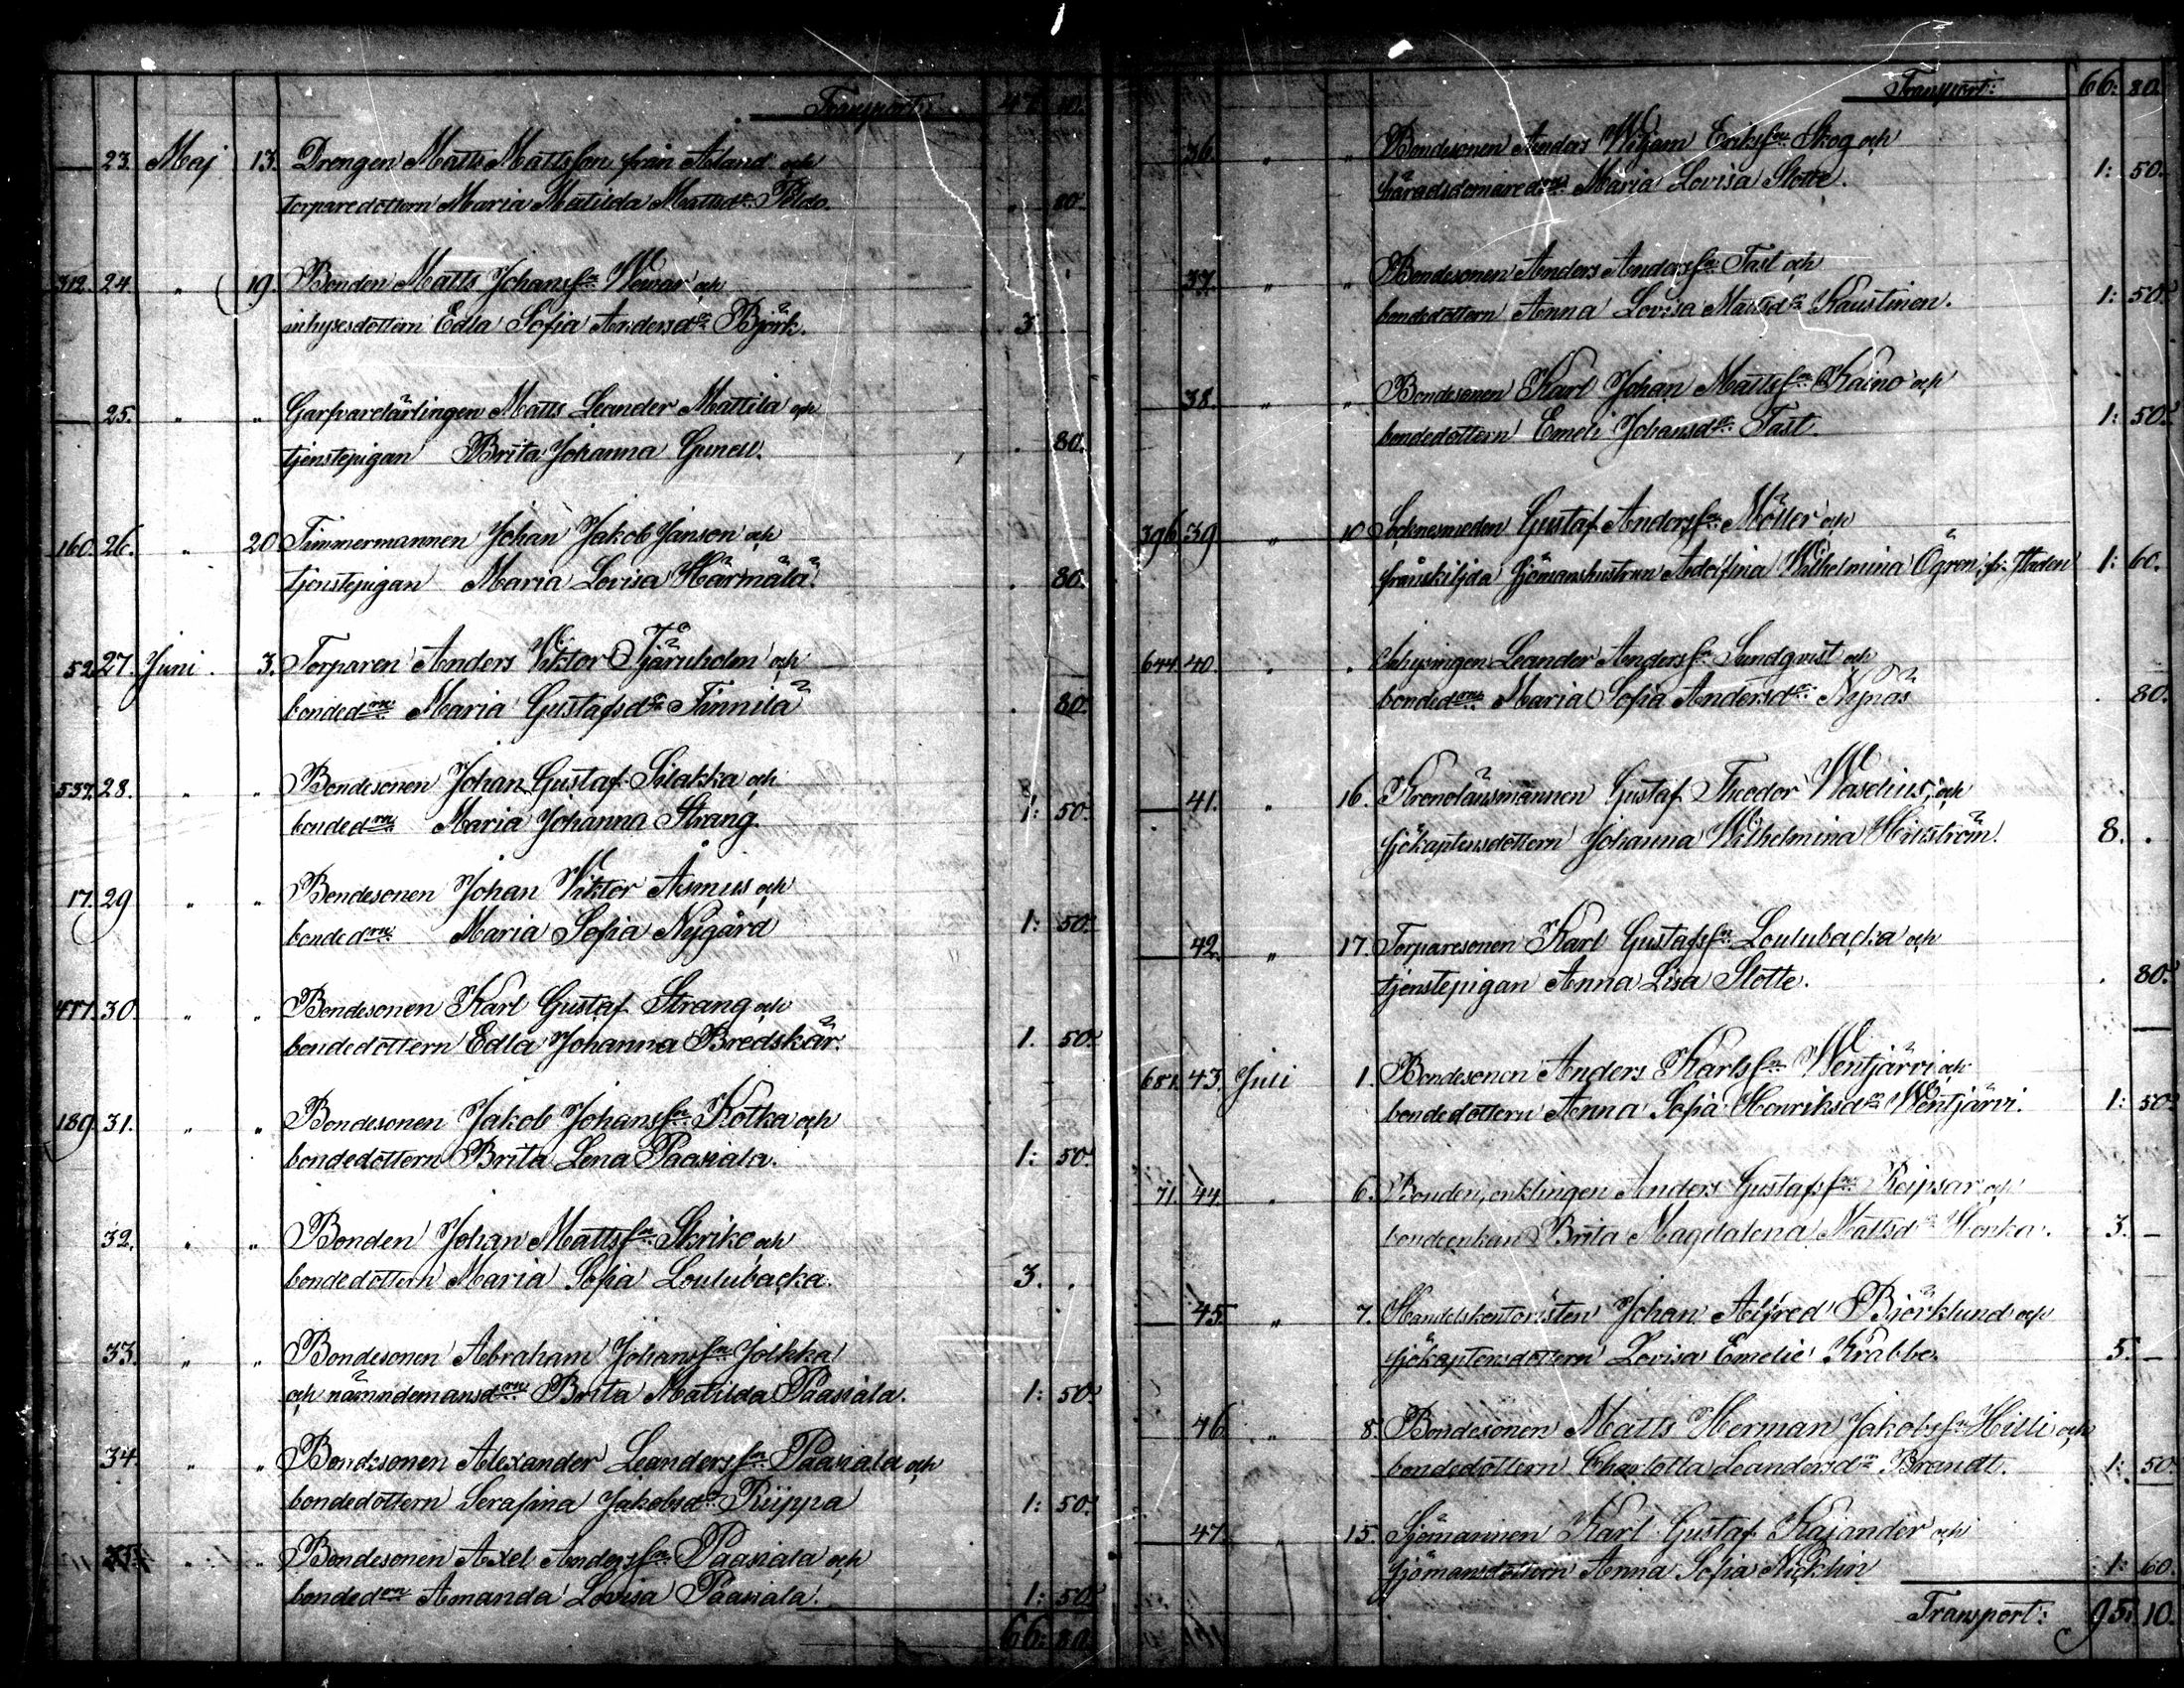 Transport: 47. 10.
23. Maj 13. Drengen Matts Mattsson från Aland och
torparedottern Maria Matilda Mattsdr Peldo. . 80.
312. 24. " 19. Bonden Matts Johansson Wewar och
inhysesdottern Edla Sofia Andersdr Björk. 3
25. " " Garfvarelärlingen Matts Leander Mattila och
tjenstepigan Brita Johanna Gunell. . 80.
160. 26. " 20. Timmermannen Johan Jakob Janson och
tjenstepigan Maria Lovisa Härmälä . 80.
52. 27. Juni 3. Torparen Anders Viktor Tjäruholm och
bondedrn Maria Gustafsdr Finnilä . 80.
537. 28. " " Bondesonen Johan Gustaf Silakka och
bondedrn Maria Johanna Strang. 1: 50.
17. 29 " " Bondesonen Johan Viktor Asmus och
bondedrn Maria Sofia Nygård 1: 50.
477. 30. " " Bondesonen Karl Gustaf Strang och
bondedottern Edla Johanna Bredskär. 1. 50.
189. 31. " " Bondesonen Jakob Johansson Kotka och
bondedottern Brita Lena Paasiala. 1: 50.
32. " " Bonden Johan Mattsson Skrike och
bondedottern Maria Sofia Loulubacka. 3. .
33. " " Bondesonen Abraham Johansson Jolkka
och nämndemansdrn Brita Matilda Paasiala. 1: 50.
34. " " Bondesonen Alexander Leandersson Paasiala och
bondedottern Serafina Jakobsdr Riippa 1: 50.
35. " " Bondesonen Axel Andersson Paasiala och
bondedrn Amanda Lovisa Paasiala. 1: 50.
66: 80.
Transport: 66: 80.
36. " " Bondesonen Anders Wiljam Eriksson Skog och
häradsdomaredrn Maria Lovisa Slotte. 1: 50.
37. " " Bondesonen Anders Andersson Fast och
bondedottern Anna Lovisa Mattsdr Kaustinen. 1: 50.
38. " " Bondesonen Karl Johan Mattsson Kaino och
bondedottern Emeli Johansdr Fast. 1: 50.
396 39 " 10 Socknesmeden Gustaf Andersson Möller och
frånskiljda sjömanshustrun Adolfina Wilhelmina Ögren, fr. staden 1: 60.
644. 40. " " Inhysingen Leander Andersson Sundqvist och
bondedrn Maria Sofia Andersdr Nynäs . 80.
41. " 16. Kronolänsmannen Gustaf Theodor Waselius, och
sjökaptensdottern Johanna Wilhelmina Hellström. 8. .
42. " 17. Torparesonen Karl Gustafsson Loulubacka och
tjenstepigan Anna Lisa Slotte. . 80.
681. 43. Juli 1. Bondesonen Anders Karlsson Wentjärvi och
bondedottern Anna Sofia Henriksdr Wentjärvi. 1: 50.
71. 44. " 6. Bonden, enklingen Anders Gustafsson Reipsar och
bondeenkan Brita Magdalena Mattsdr Honka. 3. –
45. " 7. Handelskontoristen Johan Alfred Björklund och
sjökaptensdottern Lovisa Emelie Krabbe. 5. –
46. " 8. Bondesonen Matts Herman Jakobsson Hilli och
bondedottern Charlotta Leandersdr Brandt. 1: 50
47. " 15. Sjömannen Karl Gustaf Kajander och
sjömansdottern Anna Sofia Nicklin 1: 60.
Transport: 95. 10.